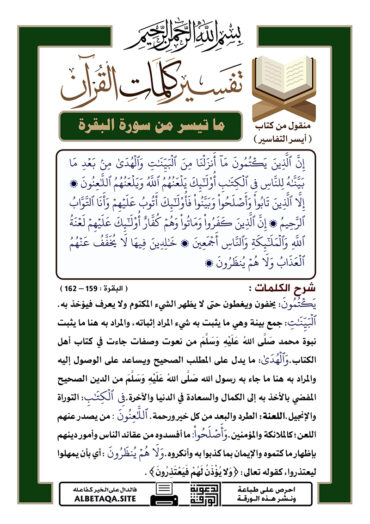 بِسْمِ اللَّهِ الرَّحْمَٰنِ الرَّحِيمِ
تفسير كلمات القرآن
منقول من كتاب
( أيسر التفاسير )
ما تيسر من سورة البقرة
إِنَّ الَّذِينَ يَكْتُمُونَ مَآ أَنزَلْنَا مِنَ الْبَيِّنَٰتِ وَالْهُدَىٰ مِنۢ بَعْدِ مَا
بَيَّنَّٰهُ لِلنَّاسِ فِي الْكِتَٰبِ أُوْلَٰٓئِكَ يَلْعَنُهُمُ اللَّهُ وَيَلْعَنُهُمُ اللَّٰعِنُونَ ۞
إِلَّا الَّذِينَ تَابُواْ وَأَصْلَحُواْ وَبَيَّنُواْ فَأُوْلَٰٓئِكَ أَتُوبُ عَلَيْهِمْ وَأَنَا التَّوَّابُ
الرَّحِيمُ ۞ إِنَّ الَّذِينَ كَفَرُواْ وَمَاتُواْ وَهُمْ كُفَّارٌ أُوْلَٰٓئِكَ عَلَيْهِمْ لَعْنَةُ
اللَّهِ وَالْمَلَٰٓئِكَةِ وَالنَّاسِ أَجْمَعِينَ ۞ خَٰلِدِينَ فِيهَا لَا يُخَفَّفُ عَنْهُمُ
الْعَذَابُ وَلَا هُمْ يُنظَرُونَ ۞
شرح الكلمات :
( البقرة : 159 – 162 )
يَكْتُمُونَ: يخفون ويغطون حتى لا يظهر الشيء المكتوم ولا يعرف فيؤخذ به.
الْبَيِّنَٰتِ: جمع بينة وهي ما يثبت به شيء المراد إثباته، والمراد به هنا ما يثبت
نبوة محمد صَلَّى اللهُ عَلَيْهِ وَسَلَّمَ من نعوت وصفات جاءت في كتاب أهل
الكتاب. وَالْهُدَىٰ: ما يدل على المطلب الصحيح ويساعد على الوصول إليه
والمراد به هنا ما جاء به رسول الله صَلَّى اللهُ عَلَيْهِ وَسَلَّمَ من الدين الصحيح
المفضي بالأخذ به إلى الكمال والسعادة في الدنيا والآخرة. فِي الْكِتَٰبِ: التوراة
والإنجيل. اللعنة: الطرد والبعد من كل خير ورحمة. اللَّٰعِنُونَ : من يصدر عنهم
اللعن؛ كالملائكة والمؤمنين. وَأَصْلَحُواْ: ما أفسدوه من عقائد الناس وأمور دينهم
بإظهار ما كتموه والإيمان بما كذبوا به وأنكروه. وَلَا هُمْ يُنظَرُونَ : أي بأن يمهلوا
ليعتذروا، كقوله تعالى: ﴿ وَلَا يُؤْذَنُ لَهُمْ فَيَعْتَذِرُونَ ﴾ .
احرص على طباعة
ونشر هذه الورقة
فالدال على الخير كفاعله
ALBETAQA.SITE